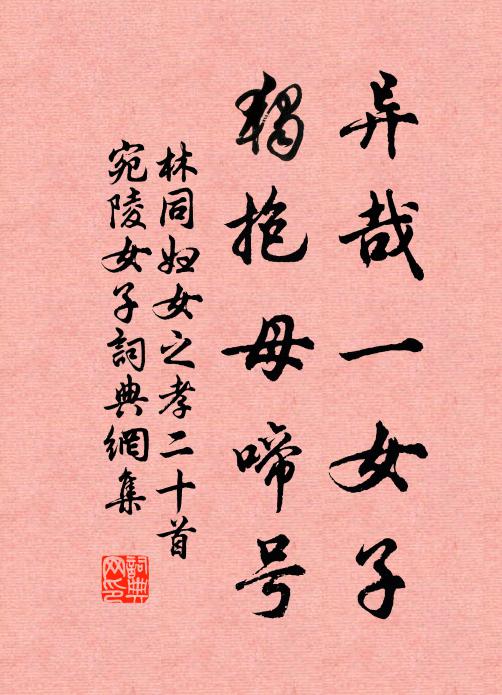 异哉一女子
独抱母啼号
林同妇女之孝二十首
宛陵女子詞典網集
詞典网印